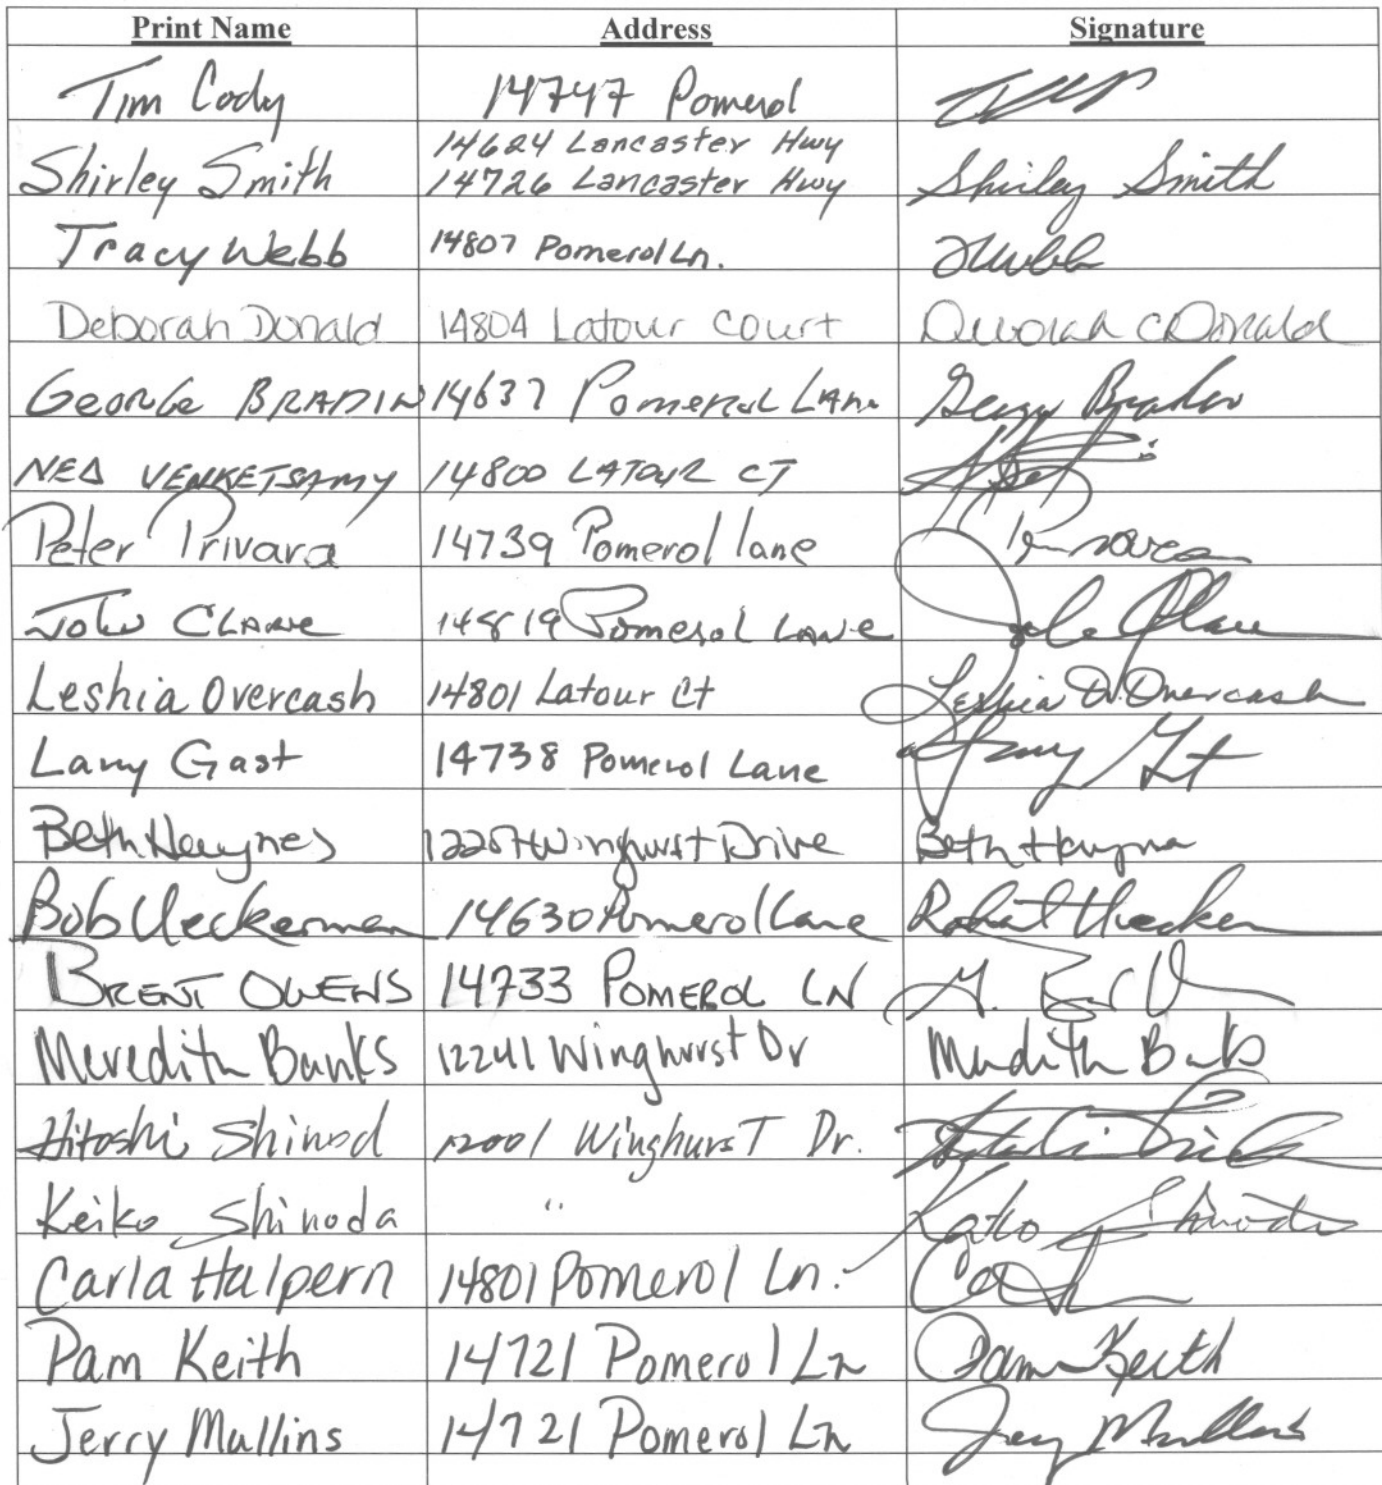 Print Name Address Signature
Tim Cody 14747 Pomerol
14624 Lancaster Hwy
Shirley Smith 14726 Lancaster Hwy Shirley Smith
Tracy Webb 14807 Pomerol Ln. TWebb
Deborah Donald 14804 Latour Court Deborah C Donald
George BRADIN 14637 Pomerol LAne George Bradin
NED VENKETSAMY 14800 LATOUR CT
Peter Privara 14739 Pomerol lane Privara
John 14819 Pomerol Lane John
Leshia Overcash 14801 Latour Ct Leshia D. Overcash
Larry Gast 14738 Pomerol Lane Larry Gast
Beth Haynes Winghurst Drive Beth Haynes
Bob Ueckerman 14630 Pomerol Lane Robert
BRENT OWENS 14733 POMEROL LN
Meredith Banks 12241 Winghurst Dr Meredith Banks
Hitoshi Shinod 12001 Winghurst Dr.
Keiko Shinoda " Keiko Shinoda
Carla Halpern 14801 Pomerol Ln.
Pam Keith 14721 Pomerol Ln Pam Keith
Jerry Mullins 14721 Pomerol Ln Jerry Mullins